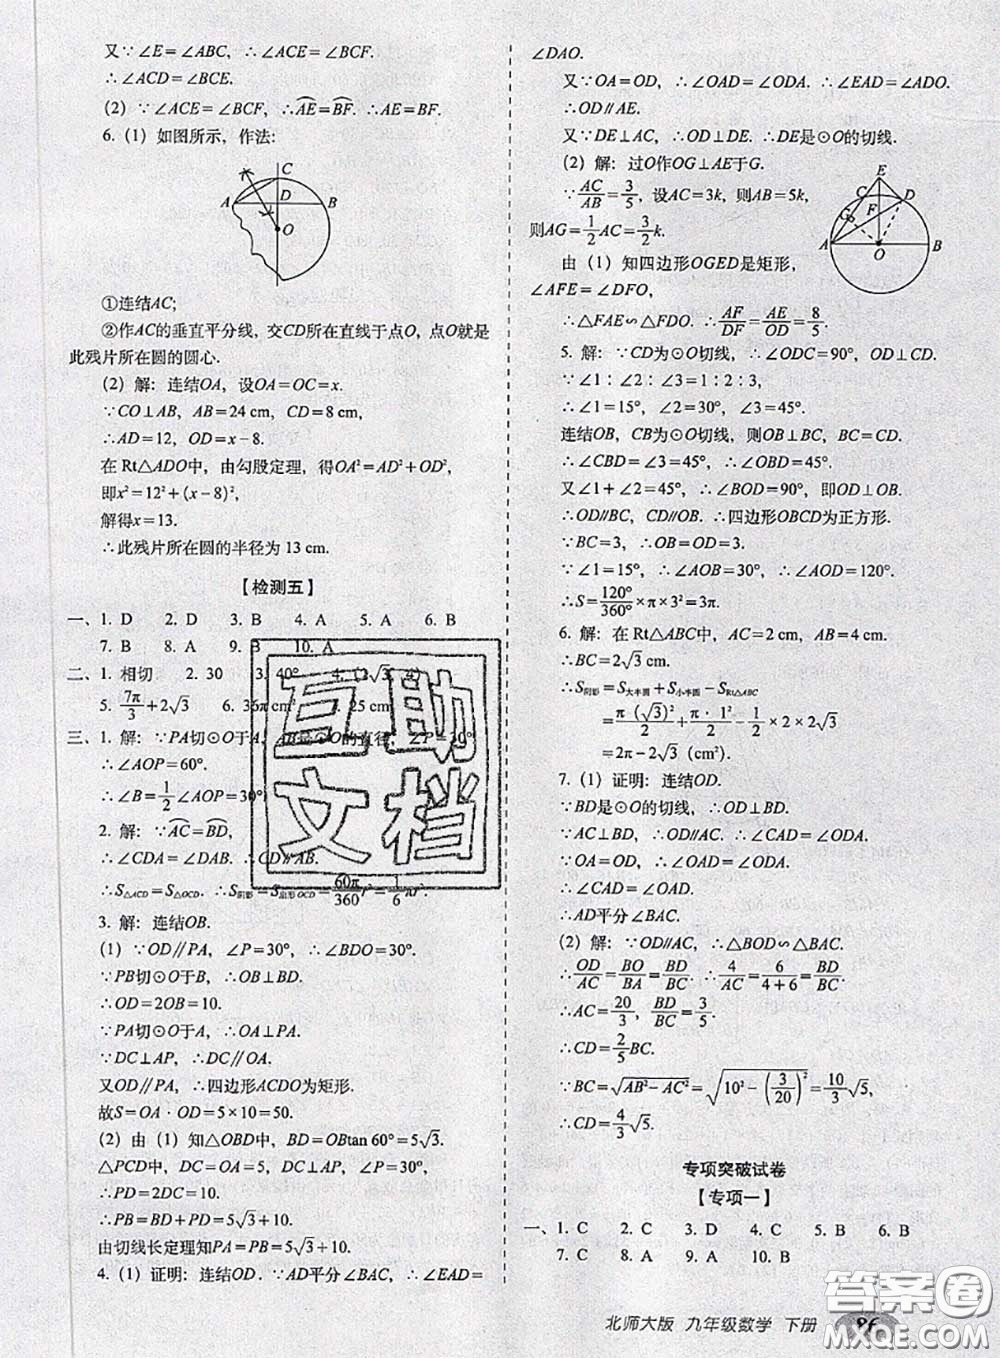 又∵∠E=∠ABC, ∴∠ACE=∠BCF.
∴∠ACD=∠BCE.
(2) ∵∠ACE=∠BCF, ∴AE⌒=BF⌒. ∴AE=BF.
6. (1) 如图所示, 作法:
C
A D B
O
①连结AC;
②作AC的垂直平分线, 交CD所在直线于点O, 点O就是
此残片所在圆的圆心.
(2) 解: 连结OA, 设OA=OC=x.
∵CO⊥AB, AB=24 cm, CD=8 cm,
∴AD=12, OD=x-8.
在 Rt△ADO中, 由勾股定理, 得OA²=AD²+OD²,
即x²=12²+(x-8)²,
解得x=13.
∴此残片所在圆的半径为 13 cm.
【检测五】
一、1. D 2. D 3. B 4. A 5. A 6. B
7. B 8. A 9. B 10. A
二、1. 相切 2. 30 3. 40°
5. 7π/3+2√3 6. 36π cm² 7. 25 cm
三、1. 解: ∵PA切⊙O于A, AB是⊙O的直径, ∠P=30°,
∴∠AOP=60°.
∴∠B=1/2∠AOP=30°
2. 解: ∵AC⌒=BD⌒,
∴∠CDA=∠DAB. ∴CD∥AB.
∴S△ACD=S△OCD. ∴S阴影=S扇形OCD=60π/360 r²=1/6 πr².
3. 解: 连结OB.
(1) ∵OD∥PA, ∠P=30°, ∴∠BDO=30°.
∵PB切⊙O于B, ∴OB⊥BD.
∴OD=2OB=10.
∵PA切⊙O于A, ∴OA⊥PA.
∵DC⊥AP, ∴DC∥OA.
又OD∥PA, ∴四边形ACDO为矩形.
故S=OA·OD=5×10=50.
(2) 由 (1) 知△OBD中, BD=OBtan 60°=5√3.
△PCD中, DC=OA=5, DC⊥AP, ∠P=30°,
∴PD=2DC=10.
∴PB=BD+PD=5√3+10.
由切线长定理知PA=PB=5√3+10.
4. (1) 证明: 连结OD. ∵AD平分∠BAC, ∴∠EAD=
∠DAO.
又∵OA=OD, ∴∠OAD=∠ODA. ∴∠EAD=∠ADO.
∴OD∥AE.
又∵DE⊥AC, ∴OD⊥DE. ∴DE是⊙O的切线.
(2) 解: 过O作OG⊥AE于G.
∵AC/AB=3/5, 设AC=3k, 则AB=5k,
则AG=1/2 AC=3/2 k.
由 (1) 知四边形OGED是矩形,
∠AFE=∠DFO,
E
C D
G F
A O B
∴△FAE∽△FDO. ∴AF/DF=AE/OD=8/5.
5. 解: ∵CD为⊙O切线, ∴∠ODC=90°, OD⊥CD.
∵∠1:∠2:∠3=1:2:3,
∴∠1=15°, ∠2=30°, ∠3=45°.
连结OB, CB为⊙O切线, 则OB⊥BC, BC=CD.
∴∠CBD=∠3=45°, ∴∠OBD=45°.
又∠1+∠2=45°, ∴∠BOD=90°, 即OD⊥OB.
∴OD∥BC, CD∥OB. ∴四边形OBCD为正方形.
∵BC=3, ∴OB=OD=3.
∵∠1=15°, ∴∠AOB=30°, ∴∠AOD=120°.
∴S=120°/360°×π×3²=3π.
6. 解: 在 Rt△ABC中, AC=2 cm, AB=4 cm.
∴BC=2√3 cm.
∴S阴影=S大半圆+S小半圆-SRt△ABC
=π(√3)²/2+π·1²/2-1/2×2×2√3
=2π-2√3 (cm²).
7. (1) 证明: 连结OD.
∵BD是⊙O的切线, ∴OD⊥BD.
∵AC⊥BD, ∴OD∥AC. ∴∠CAD=∠ODA.
∵OA=OD, ∴∠OAD=∠ODA.
∴∠CAD=∠OAD.
∴AD平分∠BAC.
(2) 解: ∵OD∥AC, ∴△BOD∽△BAC.
∴OD/AC=BO/BA=BD/BC. ∴4/AC=6/(4+6)=BD/BC.
∴AC=20/3, BD/BC=3/5.
∴CD=2/5 BC.
∵BC=√(AB²-AC²)=√(10²-(3/20)²)=10/3 √5.
∴CD=4/3 √5.
专项突破试卷
【专项一】
一、1. C 2. C 3. D 4. C 5. B 6. B
7. C 8. A 9. A 10. B
北师大版 九年级数学 下册
互助
文档
答案卷